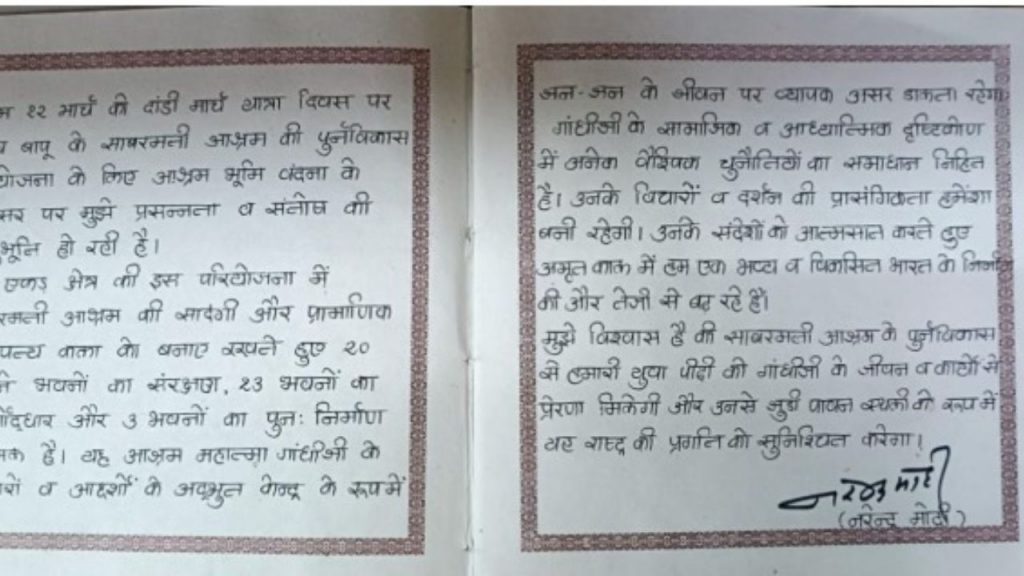 १२ मार्च की दांडी मार्च यात्रा दिवस पर
बापू के साबरमती आश्रम की पुर्नविकास
के लिए आश्रम भूमि वंदना के
पर मुझे प्रसन्नता व संतोष की
हो रही है।
एकड़ क्षेत्र की इस परियोजना में
आश्रम की सादगी और प्रामाणिक
कला को बनाए रखते हुए २०
भवनों का संरक्षण, २३ भवनों का
और ३ भवनों का पुनः निर्माण
है। यह आश्रम महात्मा गांधीजी के
व आदर्शों के अद्भुत केन्द्र के रूप में
जन-जन के जीवन पर व्यापक असर डालता रहेगा
गांधीजी के सामाजिक व आध्यात्मिक दृष्टिकोण
में अनेक वैश्विक चुनौतियों का समाधान निहित
है। उनके विचारों व दर्शन की प्रासंगिकता हमेंशा
बनी रहेगी। उनके संदेशों को आत्मसात करते हुए
अमृत काल में हम एक भव्य व विकसित भारत के निर्माण
की और तेजी से बढ़ रहे है।
मुझे विश्वास है की साबरमती आश्रम के पुर्नविकास
से हमारी युवा पीढी को गांधीजी के जीवन व कार्यो से
प्रेरणा मिलेगी और उनसे जुडी पावन स्थली के रूप में
यह राष्ट्र की प्रगति को सुनिश्चित करेगा।
नरेन्द्र मोदी
(नरेन्द्र मोदी)